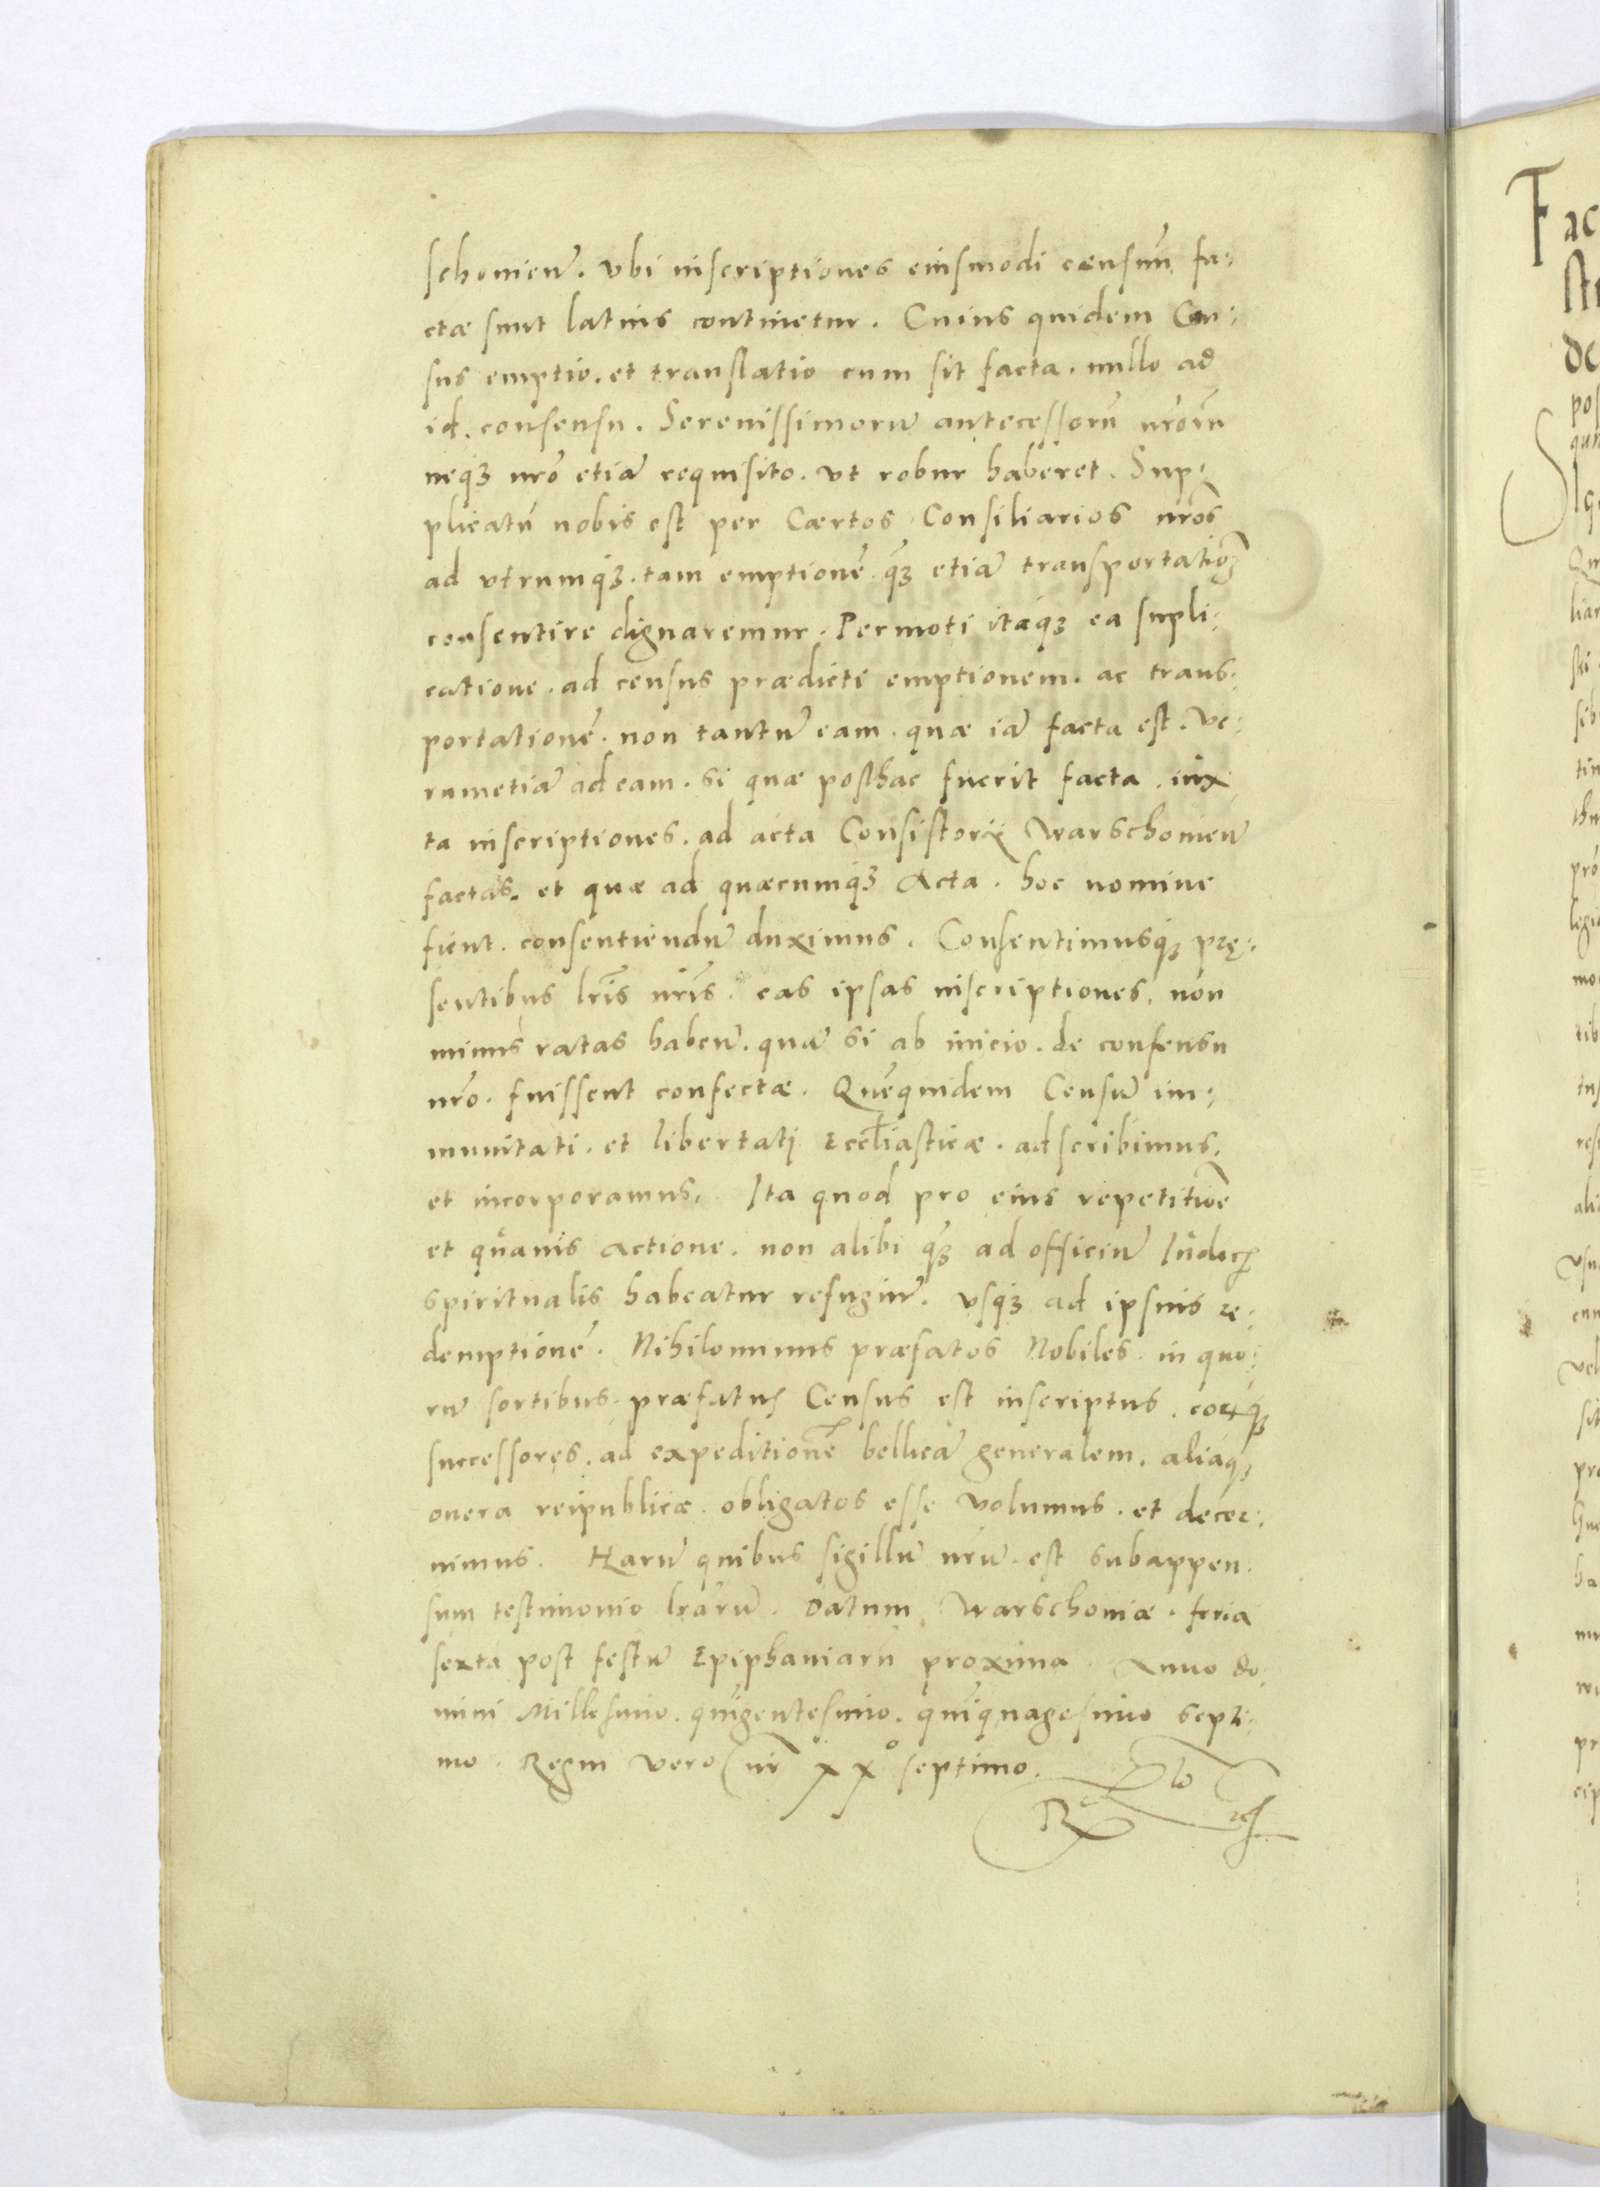 schonien̄. vbi inscriptiones eiusmodi censuū fa:
ctæ sunt latius continetur. Cuius quidem Cen:
sus emptio. et translatio cum sit facta. nullo ad
id. consensu. Serenissimorū antecessorū nr̄orū
neqȝ nr̄o etiā requisito. vt robur haberet. Sup:
plicatū nobis est per Cærtos Consiliarios nr̄os
ad vtrumqȝ. tam emptionē. q̄ȝ etiā transportationē
consentire dignaremur. Permoti itaqȝ ea supli:
catione. ad census prædicti emptionem. ac trans:
portationē. non tantū eam. quæ iā facta est. ve:
rumetiā ad eam. si quæ posthac fuerit facta. iux
ta inscriptiones. ad acta Consistorij Warschonien̄
factas. et quæ ad quæcumqȝ Acta. hoc nomine
fient. consentiendū duximus. Consentimusqȝ prę:
sentibus lr̄is nr̄is. eas ipsas inscriptiones. non
minus ratas haben̄. quā si ab inicio. de consensu
nr̄o. fuissent confectæ. Quēquidem Censū im:
munitati. et libertati Eccl̄iasticæ. adscribimus.
et incorporamus. Ita quod pro eius repetitione
et quāuis actione. non alibi q̄ȝ ad officiū Iudicis
spiritualis habeatur refugiū. vsqȝ ad ipsius re:
demptionē. Nihilominus præfatos Nobiles. in quo:
rū sortibus. præfatus Census est inscriptus. eorqȝ
successores. ad expeditionē bellicā generalem. aliaqȝ
onera reipublicæ. obligatos esse volumus. et decer:
nimus. Harū quibus sigillū nr̄ū. est subappen.
sum testimonio lr̄arū. Datum Warschoniæ. feria
sexta post festū Epiphaniarū proxima. Anno do
mini Millesimo. quīgentesimo. quīquagesimo septi:
mo. Regni vero nr̄i xxº septimo.